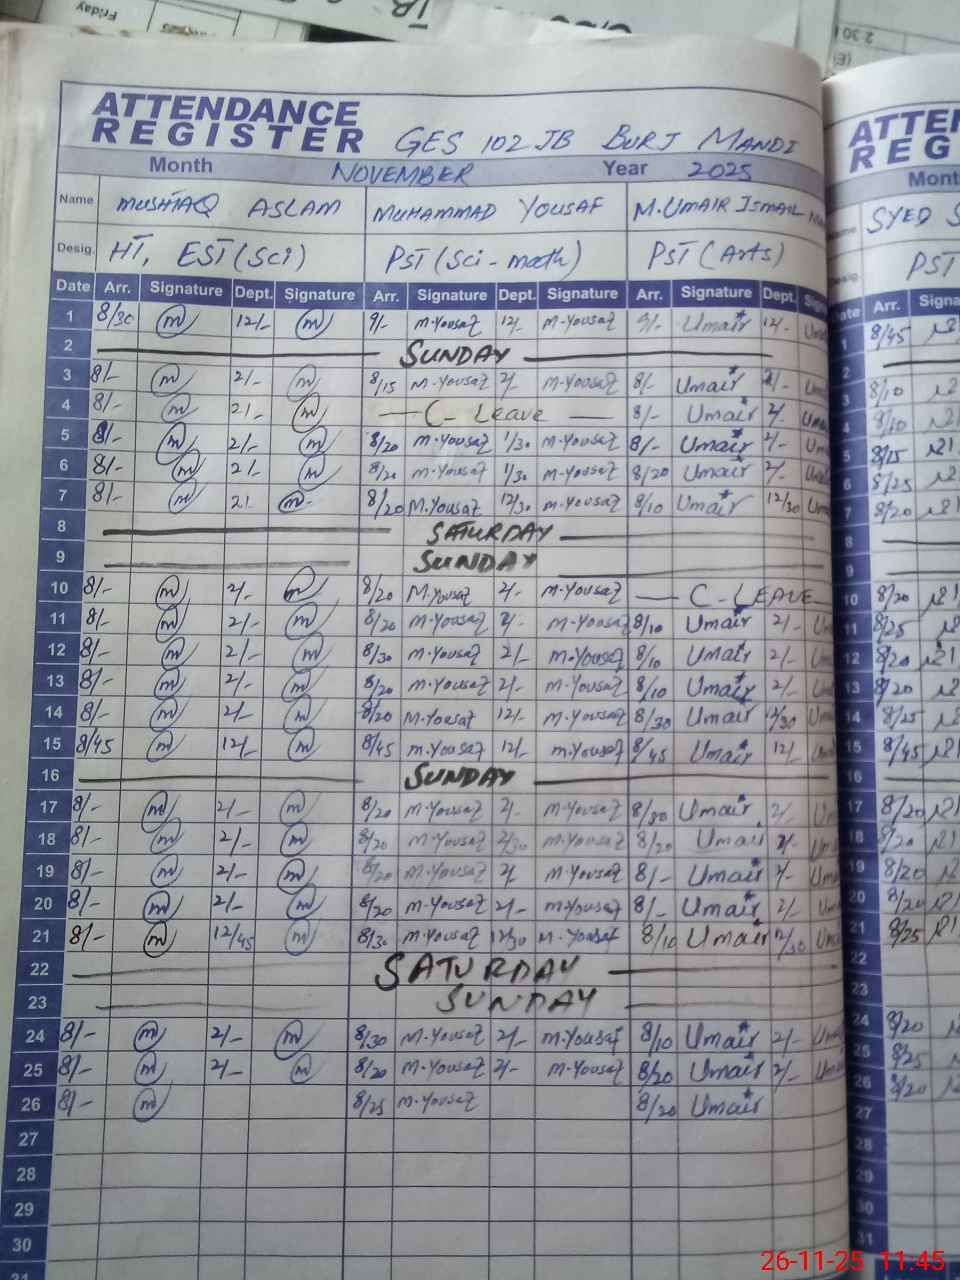 Friday
2 30
(E)
ATTENDANCE
REGISTER GES 102 JB BURJ MANDI
Month NOVEMBER Year 2025
Name MUSHTAQ ASLAM MUHAMMAD YOUSAF M.UMAIR ISMAIL
Desig. HT, EST (Sci) PST (Sci - math) PST (Arts)
Date Arr. Signature Dept. Signature Arr. Signature Dept. Signature Arr. Signature Dept.
1 8/30 m 12/- m 9/- M.Yousaf 12/- M.Yousaf 9/- Umair 12/-
2 SUNDAY
3 8/- m 2/- m 8/15 M.Yousaf 2/- M.Yousaf 8/- Umair 2/-
4 8/- m 2/- m C- Leave 8/- Umair 2/-
5 8/- m 2/- m 8/20 M.Yousaf 1/30 M.Yousaf 8/- Umair 2/-
6 8/- m 2/- m 8/20 M.Yousaf 1/30 M.Yousaf 8/20 Umair 2/-
7 8/- m 2/- m 8/20 M.Yousaf 12/30 M.Yousaf 8/10 Umair 12/30
8 SATURDAY
9 SUNDAY
10 8/- m 2/- m 8/20 M.Yousaf 2/- M.Yousaf C- LEAVE
11 8/- m 2/- m 8/20 M.Yousaf 2/- M.Yousaf 8/10 Umair 2/-
12 8/- m 2/- m 8/30 M.Yousaf 2/- M.Yousaf 8/10 Umair 2/-
13 8/- m 2/- m 8/20 M.Yousaf 2/- M.Yousaf 8/10 Umair 2/-
14 8/- m 2/- m 8/20 M.Yousaf 12/- M.Yousaf 8/30 Umair 12/30
15 8/45 m 12/- m 8/45 M.Yousaf 12/- M.Yousaf 8/45 Umair 12/-
16 SUNDAY
17 8/- m 2/- m 8/20 M.Yousaf 2/- M.Yousaf 8/30 Umair 2/-
18 8/- m 2/- m 8/20 M.Yousaf 2/30 M.Yousaf 8/20 Umair 2/-
19 8/- m 2/- m 8/20 M.Yousaf 2/- M.Yousaf 8/- Umair 2/-
20 8/- m 2/- m 8/20 M.Yousaf 2/- M.Yousaf 8/- Umair 2/-
21 8/- m 12/45 m 8/30 M.Yousaf 12/30 M.Yousaf 8/10 Umair 12/30
22 SATURDAY
23 SUNDAY
24 8/- m 2/- m 8/30 M.Yousaf 2/- M.Yousaf 8/10 Umair 2/-
25 8/- m 2/- m 8/20 M.Yousaf 2/- M.Yousaf 8/20 Umair 2/-
26 8/- m 8/25 M.Yousaf 8/20 Umair
27
28
29
30
31
REG
Month
SYED
PST
Arr.
1 8/45
2
3 8/10
4 8/10
5 8/15
6 8/25
7 8/20
8
9
10 8/20
11 8/25
12 8/20
13 8/20
14 8/25
15 8/45
16
17 8/20
18 8/20
19 8/20
20 8/20
21 8/25
22
23
24 8/20
25 8/25
26 8/20
27
28
29
30
31
26-11-25 11:45